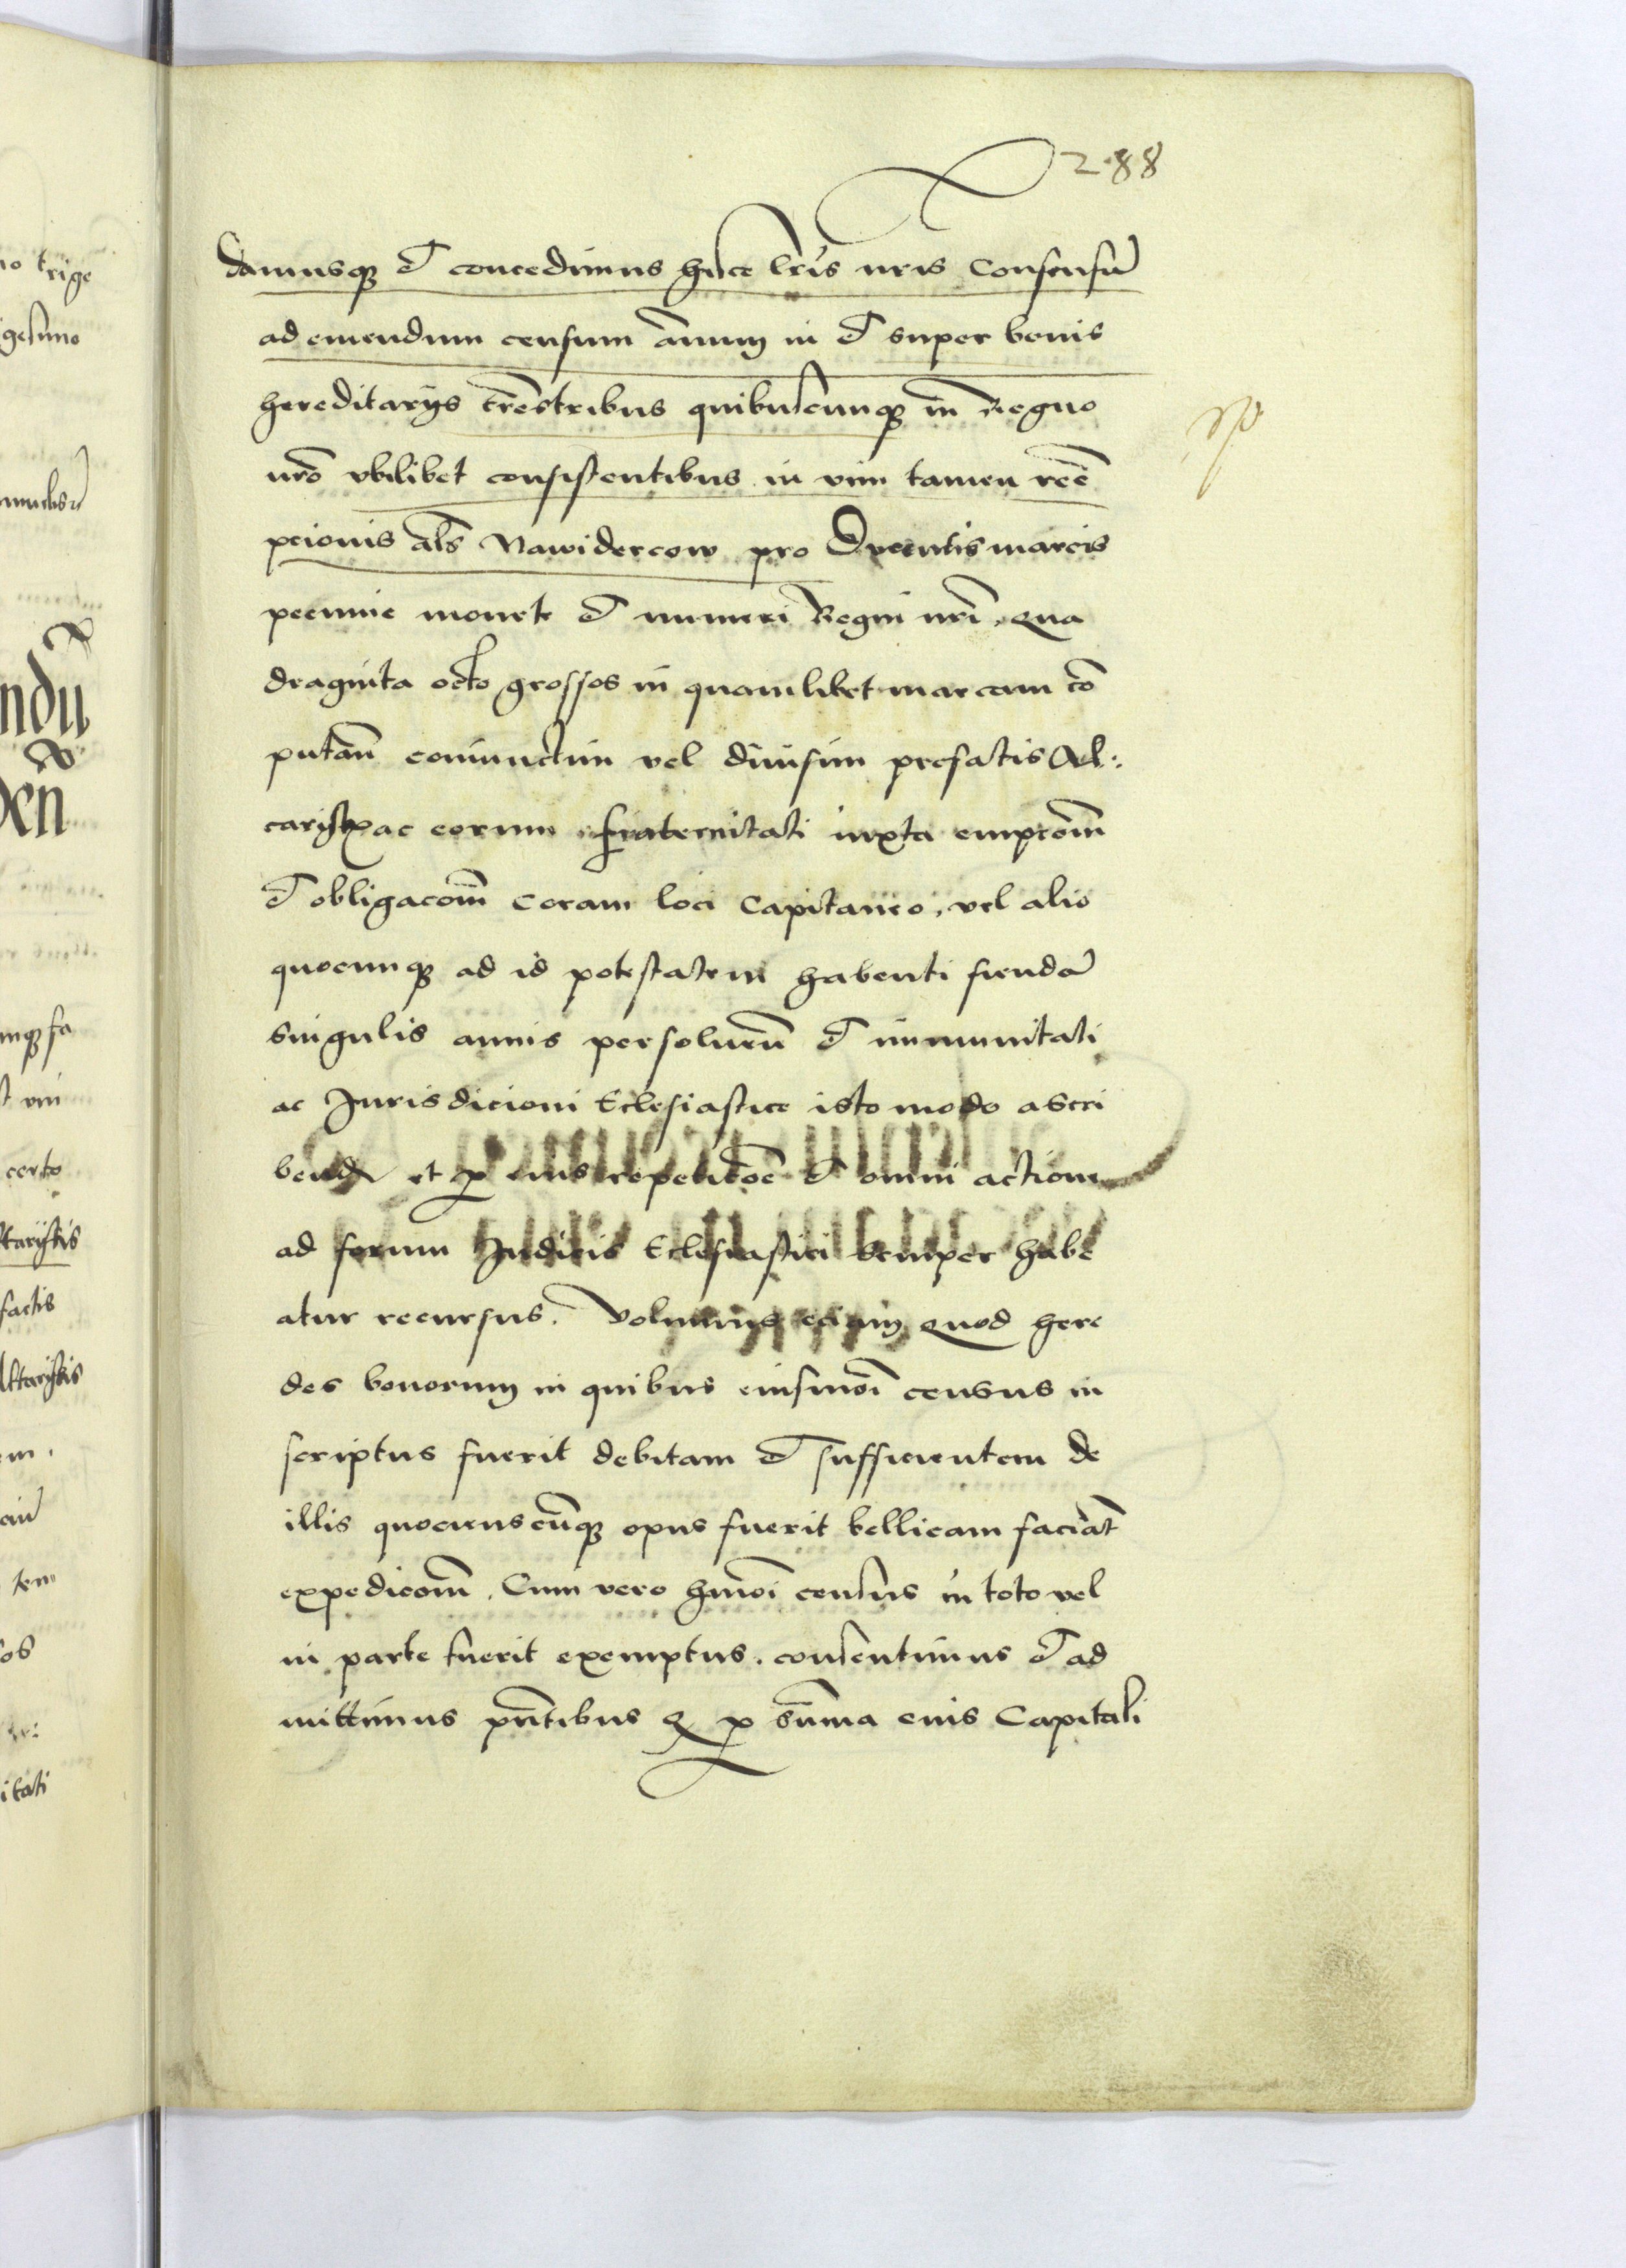 288
damusq et concedimus hisce lris nris Consensu
ad emendum censum annuu in et super bonis
hereditarys trestribus quibuscunq in Regno
nro vbilibet consistentibus in vim tamen ree
pcionis als Nawidercow pro Ducentis marcis
pecunie monete et numeri Regni nri, Qua
draginta octo grossos in quamlibet marcam co
putan coniunctim vel diuisim prefatis Al:
taristis ac eorum fraternitati iuxta empcom
et obligacom Coram loci Capitaneo, vel alio
quocunq ad id potestatem habenti fienda
singulis annis persoluen et immunitati
ac Jurisdicioni Eclesiastice isto modo ascri
bend et p eius repeticoe et omni actione
ad forum Judicis Eclesiastici semper habe
atur recursus. Volumus eciam quod here
des bonorum in quibus eiusmoi census in
scriptus fuerit debitam et sufficientem de
illis quocienscuq opus fuerit bellicam faciat
expedicom. Cum vero hmoi census in toto vel
in parte fuerit exemptus. consentimus et ad
mittimus pntibus q p suma eius Capitali
no trige
gesimo
ndu
den
mq fa
certo
ltaristis
factis
ltaristis
tem
itati